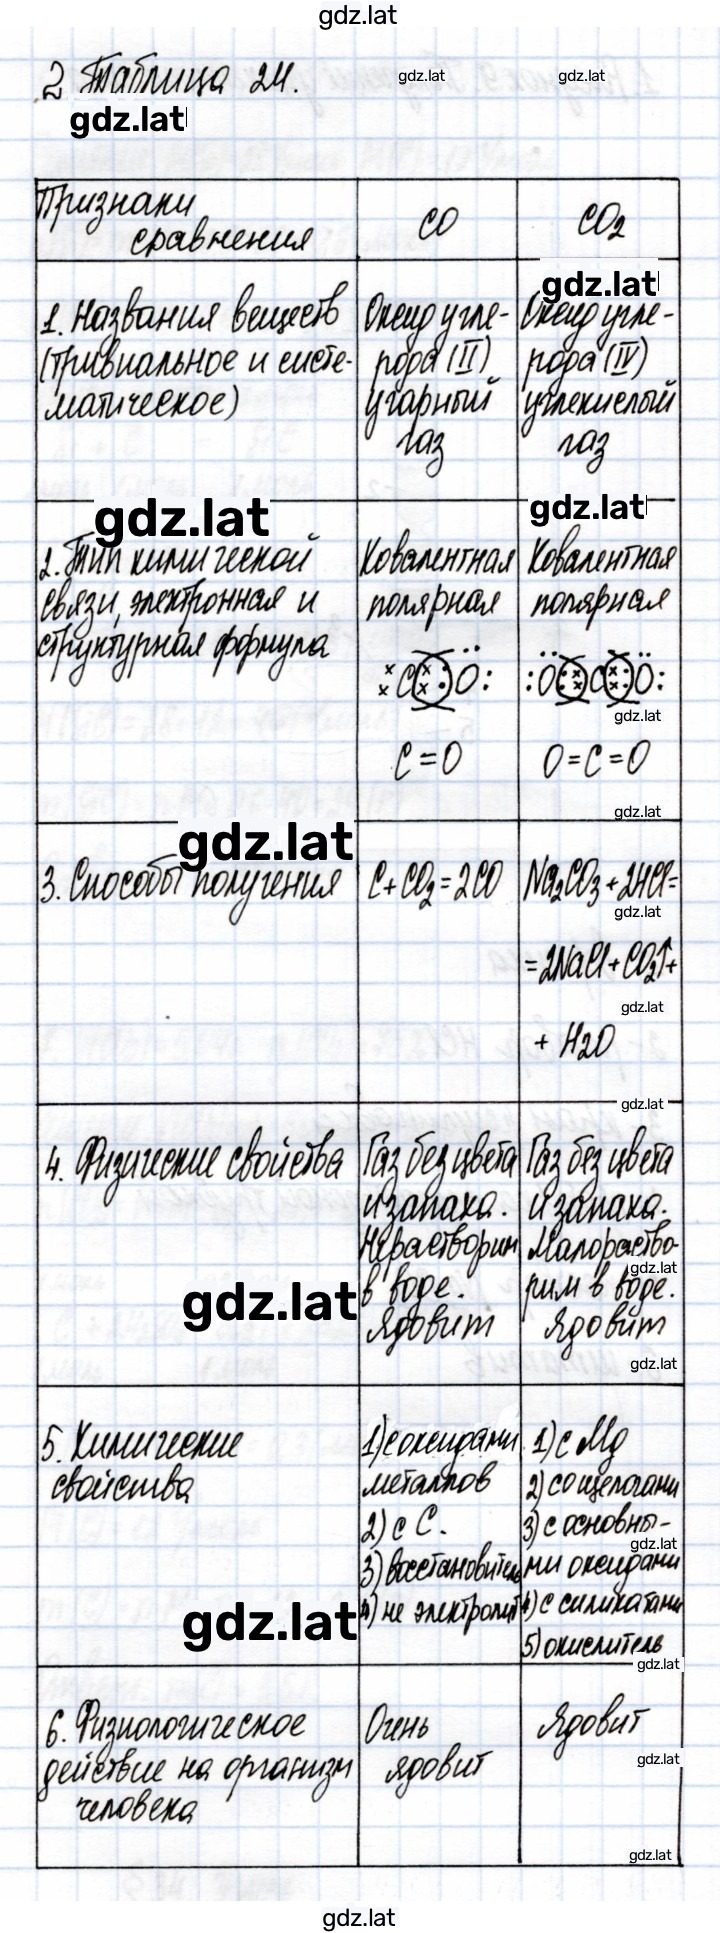 gdz.lat
2 Таблица 24.
gdz.lat
gdz.lat
gdz.lat
Признаки
сравнения
CO
CO2
gdz.lat
1. Названия веществ
(тривиальное и систе-
матическое)
Оксид угле-
рода (II)
угарный
газ
Оксид угле-
рода (IV)
углекислый
газ
gdz.lat
gdz.lat
2. Тип химической
связи, электронная и
структурная формула
Ковалентная
полярная
C O:
C=O
Ковалентная
полярная
:O C O:
gdz.lat
O=C=O
gdz.lat
gdz.lat
3. Способы получения
C+CO2=2CO
Na2CO3+2HCl=
gdz.lat
=2NaCl+CO2↑+
gdz.lat
+ H2O
gdz.lat
4. Физические свойства
Газ без цвета
и запаха.
Нерастворим
в воде.
Ядовит
Газ без цвета
и запаха.
Малораство-
gdz.lat
рим в воде.
Ядовит
gdz.lat
gdz.lat
5. Химические
свойства
1) с оксидами
металлов
2) с C.
3) восстановитель
4) не электролит
1) с Mg
2) со щелочами
3) с основны-
gdz.lat
ми оксидами
4) с силикатами
5) окислитель
gdz.lat
gdz.lat
6. Физиологическое
действие на организм
человека
Очень
ядовит
Ядовит
gdz.lat
gdz.lat
gdz.lat